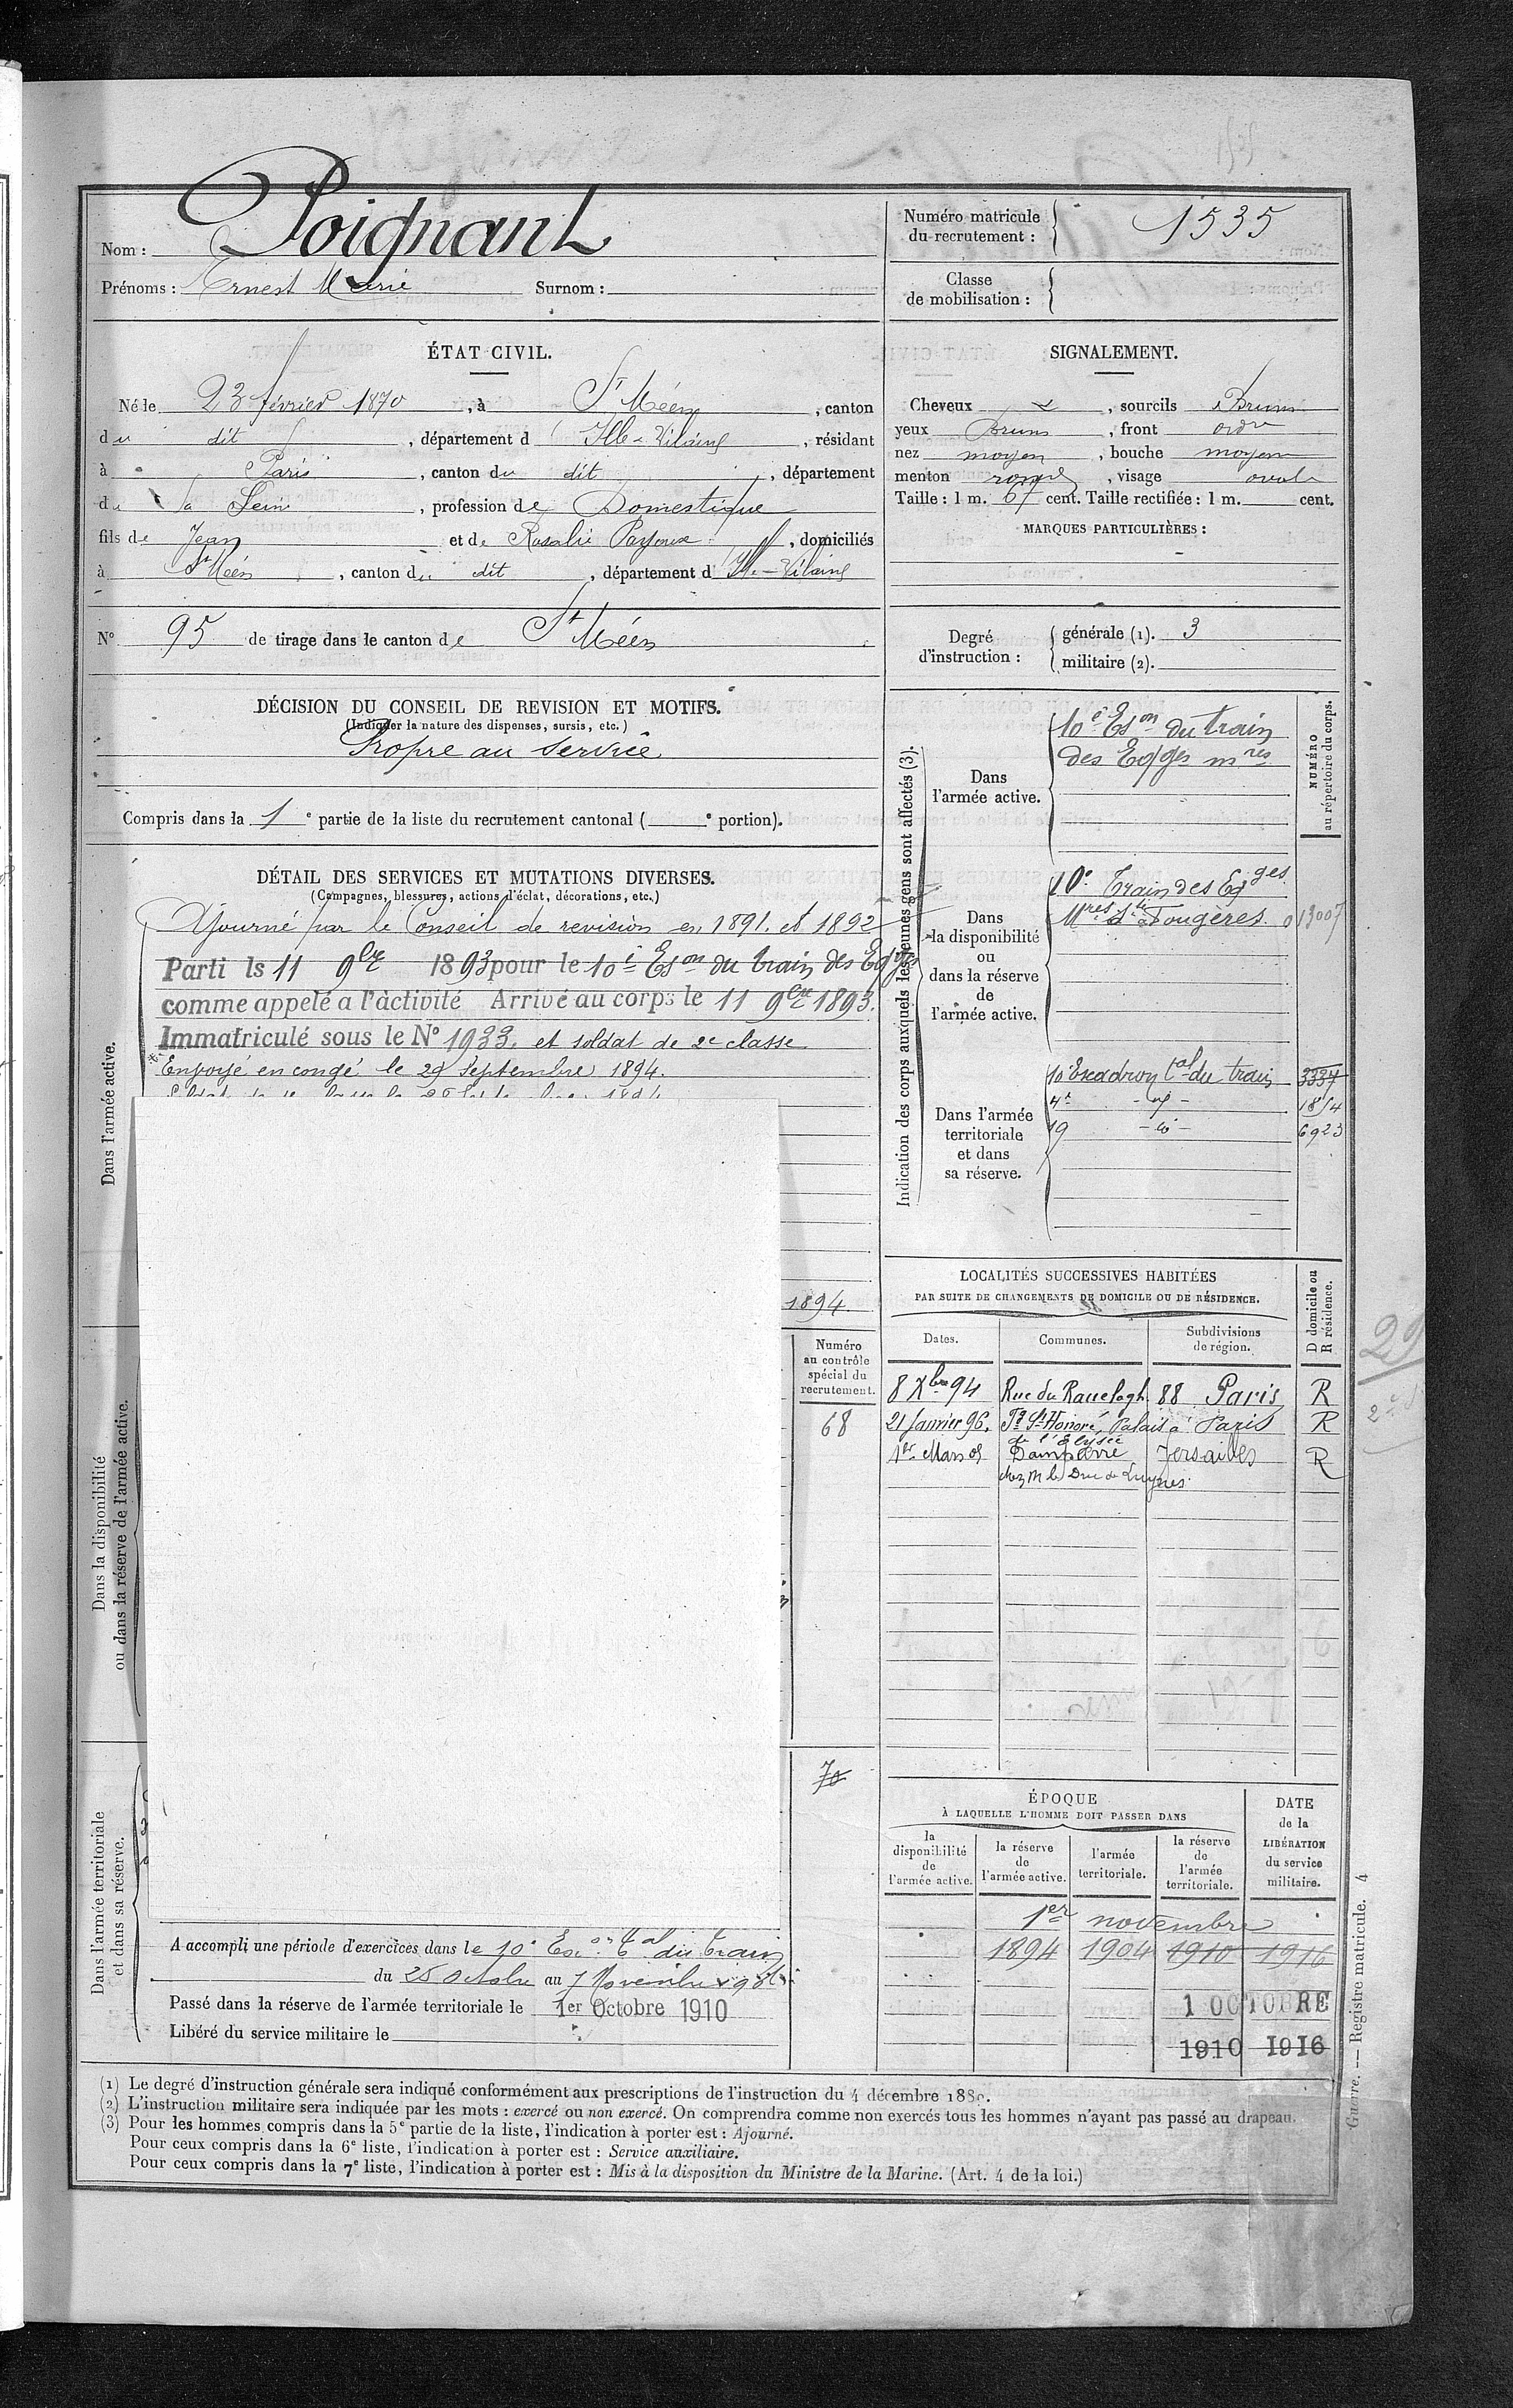 Nom : Poignant
Prénoms : Ernest Marie Surnom :
Numéro matricule du recrutement : 1535
Classe de mobilisation :
ÉTAT CIVIL.
Né le 23 février 1870, à St Méen, canton
du dit, département d'Ille-Vilaine, résidant
à Paris, canton du dit, département
de la Seine, profession de Domestique
fils de Jean et de Rosalie, domiciliés
à St Méen, canton du dit, département d'Ille-Vilaine
N° 95 de tirage dans le canton de St Méen
SIGNALEMENT.
Cheveux, sourcils Bruns
yeux Bruns, front ordre
nez moyen, bouche moyenne
menton rond, visage ovale
Taille : 1 m. 67 cent. Taille rectifiée : 1 m. cent.
MARQUES PARTICULIÈRES :
Degré d'instruction : générale (1). 3
militaire (2).
DÉCISION DU CONSEIL DE REVISION ET MOTIFS.
(Indiquer la nature des dispenses, sursis, etc.)
Propre au service
Compris dans la 1e partie de la liste du recrutement cantonal ( e portion).
DÉTAIL DES SERVICES ET MUTATIONS DIVERSES.
(Campagnes, blessures, actions d'éclat, décorations, etc.)
Dans l'armée active.
Ajourné par le Conseil de revision en 1891. et 1892
Parti ls 11 9bre 1893 pour le 10e Eson du train des Eqges
comme appelé a l'àctivité Arrivé au corps le 11 9bre 1893.
Immatriculé sous le N° 1933. et soldat de 2e classe
Envoyé en congé le 29 Septembre 1894.
1894.
Dans la disponibilité
ou dans la réserve de l'armée active.
Numéro
au contrôle
spécial du
recrutement.
68
70
Dans l'armée territoriale
et dans sa réserve.
A accompli une période d'exercices dans le 10e Eson tal du train
du 25 Octobre au 7 Novembre
Passé dans la réserve de l'armée territoriale le 1er Octobre 1910
Libéré du service militaire le
Indication des corps auxquels les jeunes gens sont affectés (3).
NUMÉRO
au répertoire du corps.
Dans
l'armée active.
10e Eson du train
des Eqges mres
Dans
la disponibilité
ou
dans la réserve
de
l'armée active.
10e Train des Eqges
Mres Fougères. 013007
Dans l'armée
territoriale
et dans
sa réserve.
10 Escadron tal du train 3337
4e 1814
19 6923
LOCALITÉS SUCCESSIVES HABITÉES
PAR SUITE DE CHANGEMENTS DE DOMICILE OU DE RÉSIDENCE.
Dates. Communes. Subdivisions de région. D domicile ou R résidence.
8 Xbre 94 Rue du Ranelagh 88 Paris R
21 Janvier 96. Fg St Honoré, Palais à Paris R
de l'Elysée
1er Mars 05 Dampierre Versailles R
chez M le Duc de Luynes
29
ÉPOQUE
À LAQUELLE L'HOMME DOIT PASSER DANS
DATE
de la
LIBÉRATION
du service
militaire.
la disponibilité de l'armée active.
la réserve de l'armée active.
l'armée territoriale.
la réserve de l'armée territoriale.
1er novembre
1894 1904 1910 1916
1 OCTOBRE
1910 1916
(1) Le degré d'instruction générale sera indiqué conformément aux prescriptions de l'instruction du 4 décembre 1889.
(2) L'instruction militaire sera indiquée par les mots : exercé ou non exercé. On comprendra comme non exercés tous les hommes n'ayant pas passé au drapeau.
(3) Pour les hommes compris dans la 5e partie de la liste, l'indication à porter est : Ajourné.
Pour ceux compris dans la 6e liste, l'indication à porter est : Service auxiliaire.
Pour ceux compris dans la 7e liste, l'indication à porter est : Mis à la disposition du Ministre de la Marine. (Art. 4 de la loi.)
Guerre. — Registre matricule. 4